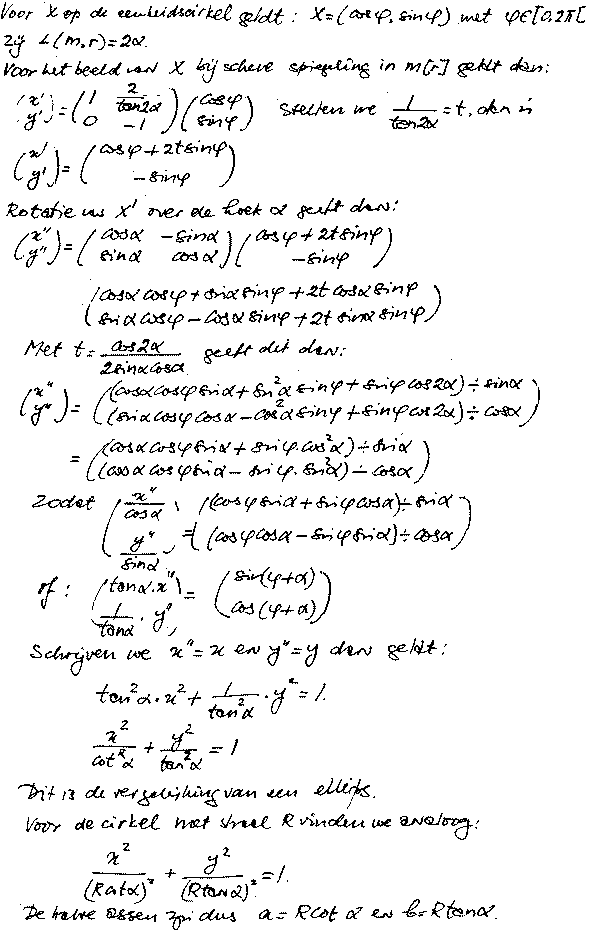 Voor X op de eenheidscirkel geldt: X=(cosφ, sinφ) met φ∈[0,2π[
Zij ∠(m,r)=2α.
Voor het beeld van X bij scheve spiegeling in m[r] geldt dan:
(x' y') = (1 2/tan2α 0 -1)(cosφ sinφ) Stellen we 1/tan2α = t, dan is
(x' y') = (cosφ+2t sinφ -sinφ)
Rotatie van X' over de hoek α geeft dan:
(x'' y'') = (cosα -sinα sinα cosα)(cosφ+2t sinφ -sinφ)
(cosα cosφ + sinα sinφ + 2t cosα sinφ
sinα cosφ - cosα sinφ + 2t sinα sinφ)
Met t = cos2α/2sinα cosα geeft dit dan:
(x'' y'') = ((cosα cosφ sinα + sin²α sinφ + sinφ cos2α) ÷ sinα
(sinα cosφ cosα - cos²α sinφ + sinφ cos2α) ÷ cosα)
= ((cosα cosφ sinα + sinφ cos²α) ÷ sinα
(cosα cosφ sinα - sinφ. sin²α) ÷ cosα)
Zodat (x''/cosα y''/sinα) = ((cosφ sinα + sinφ cosα) ÷ sinα
(cosφ cosα - sinφ sinα) ÷ cosα)
of: (tanα.x'' 1/tanα . y'') = (sin(φ+α) cos(φ+α))
Schrijven we x''=x en y''=y dan geldt:
tan²α.x² + 1/tan²α . y² = 1.
x²/cot²α + y²/tan²α = 1
Dit is de vergelijking van een ellips.
Voor de cirkel met straal R vinden we analoog:
x²/(Rcotα)² + y²/(Rtanα)² = 1.
De halve assen zijn dus a = Rcot α en b = Rtanα.